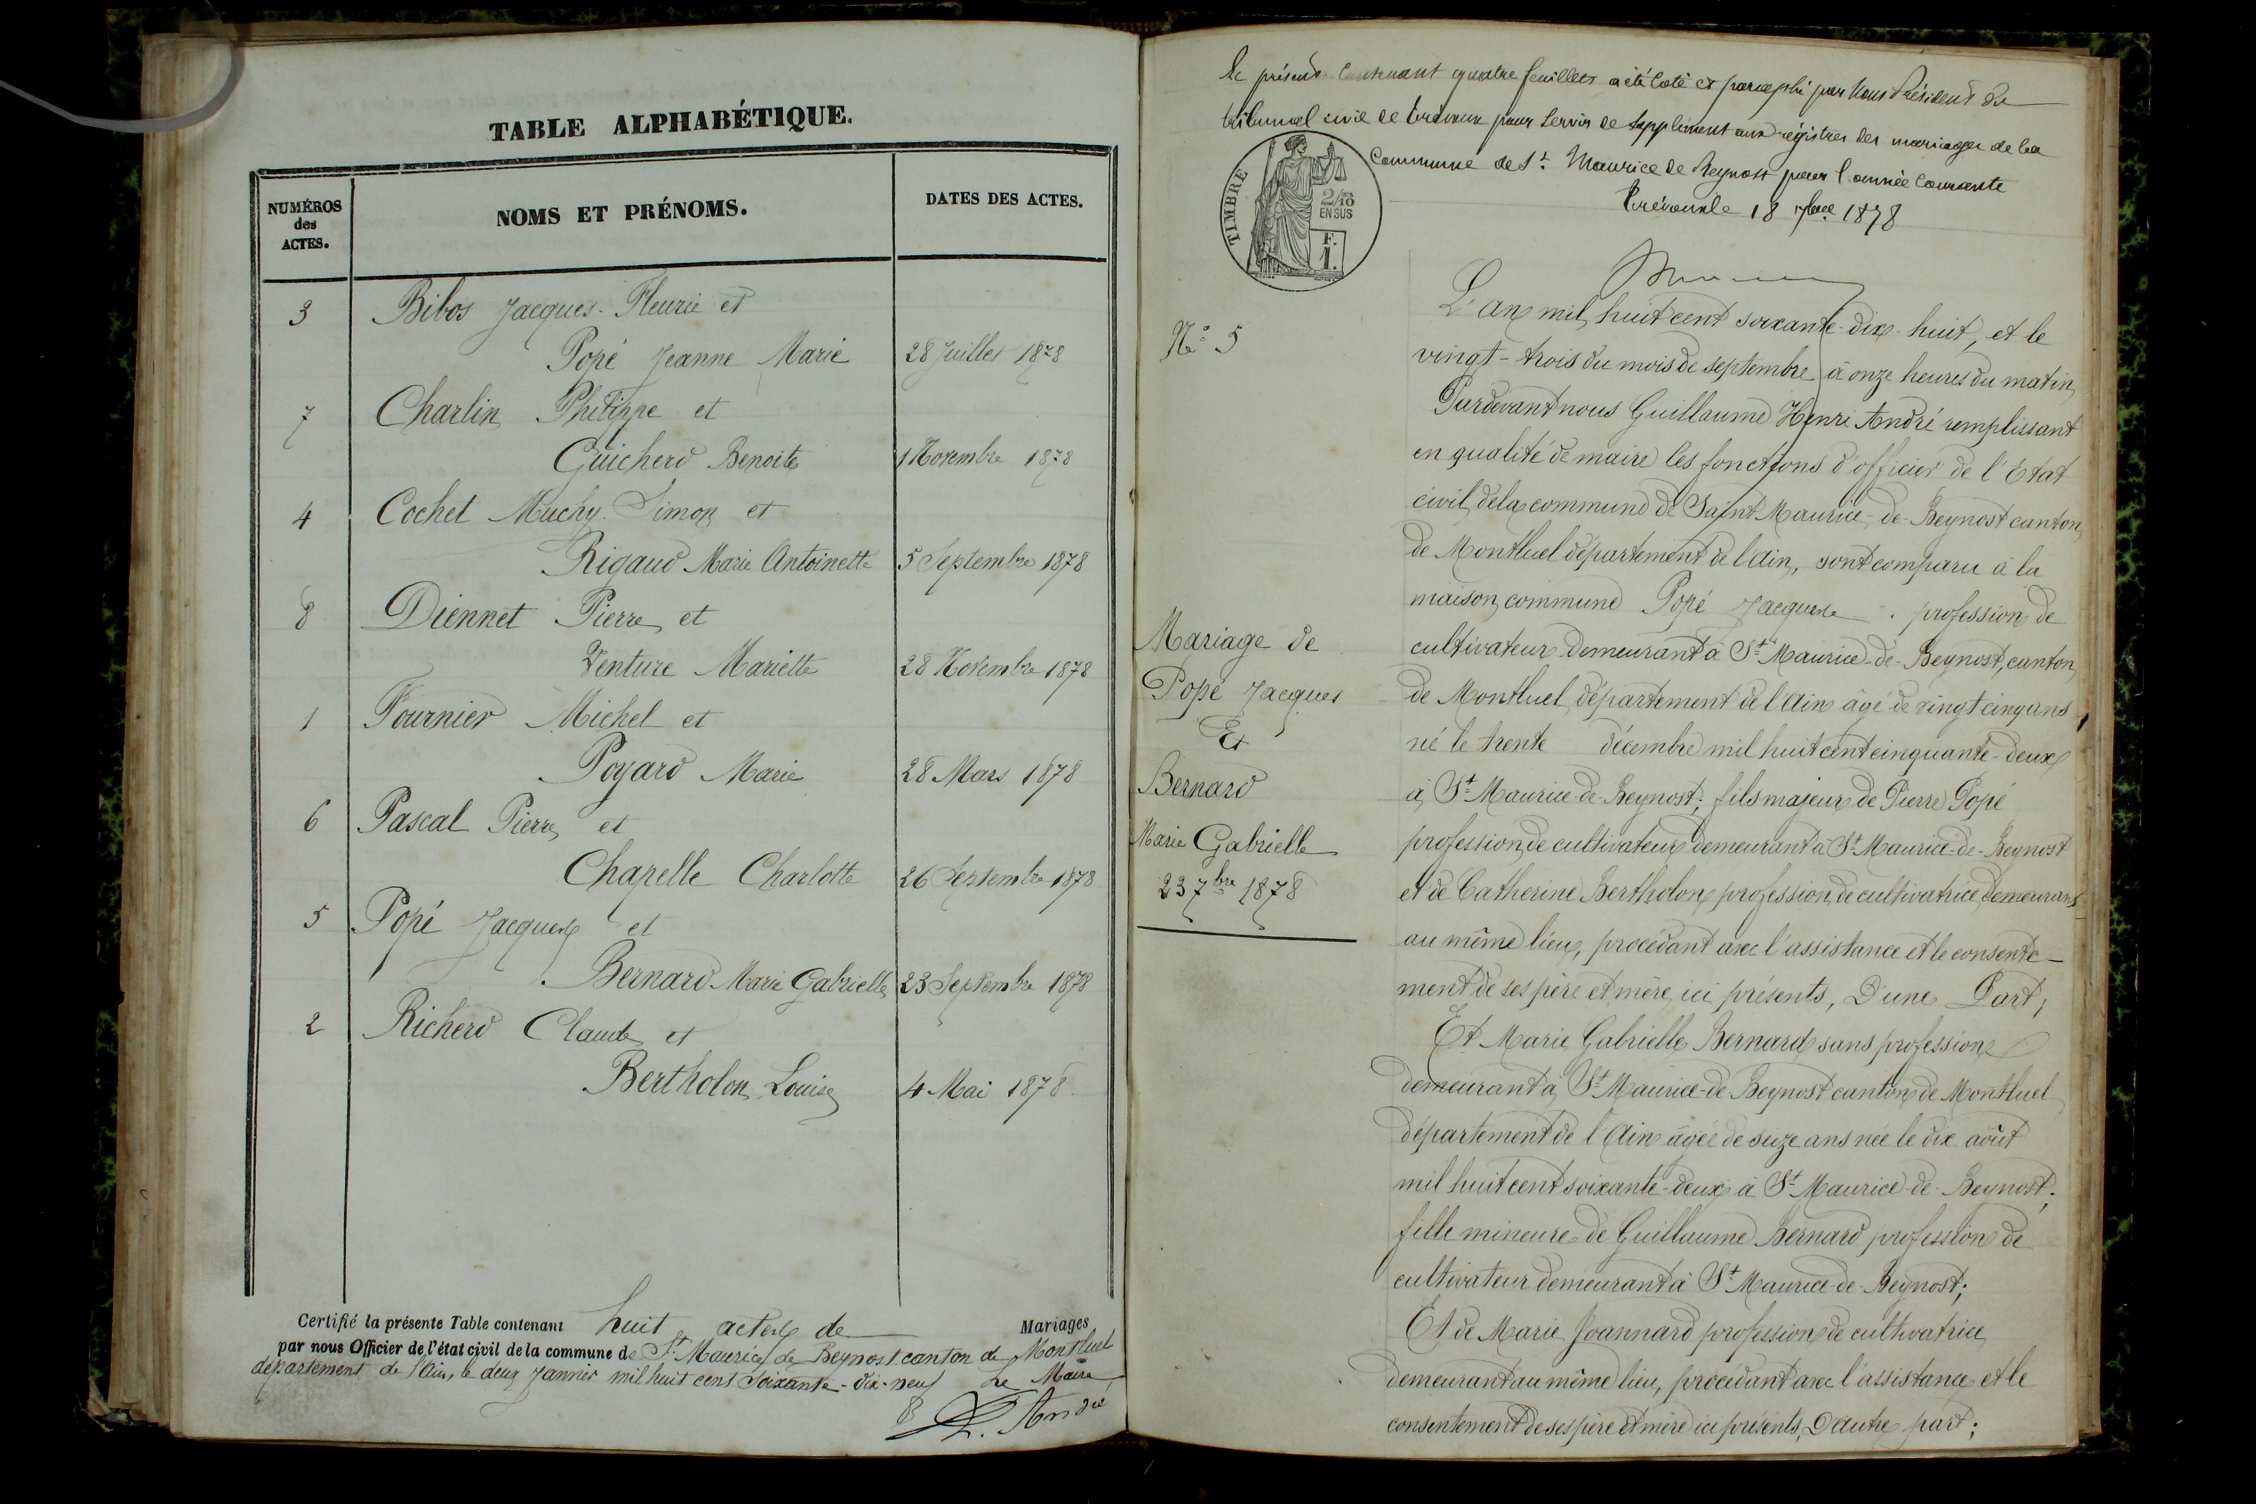 TABLE ALPHABÉTIQUE.
NUMÉROS des ACTES.
NOMS ET PRÉNOMS.
DATES DES ACTES.
3 Bibos Jacques-Fleurie et
Popé Jeanne Marie 28 Juillet 1878
7 Charlin Philippe et
Guicherd Benoite 1 Novembre 1878
4 Cochet Muchy Simon et
Rigaud Marie Antoinette 5 Septembre 1878
8 Diennet Pierre et
Venture Mariette 28 Novembre 1878
1 Fournier Michel et
Poyard Marie 28 Mars 1878
6 Pascal Pierre et
Chapelle Charlotte 26 Septembre 1878
5 Popé Jacques et
Bernard Marie Gabrielle 23 Septembre 1878
2 Richerd Claude et
Bertholon Louise 4 Mai 1878
Certifié la présente Table contenant huit actes de Mariages
par nous Officier de l'état civil de la commune de St Maurice de Beynost canton de Montluel
département de l'Ain, le deux Janvier mil huit cent soixante-dix-neuf Le Maire
André
Le présent contenant quatre feuillets a été coté et paraphé par Nous Président du
tribunal civil de Trévoux pour servir de supplément aux régistres des mariages de la
Commune de St Maurice de Beynost pour l'année courante
Trévoux le 18 7bre 1878
TIMBRE
2/10
EN SUS
F.
1.
N° 5
L'an mil huit cent soixante-dix-huit, et le
vingt-trois du mois de septembre à onze heures du matin
Pardevant nous Guillaume Henri André remplissant
en qualité de maire les fonctions d'officier de l'Etat
civil de la commune de Saint Maurice-de-Beynost canton
de Montluel département de l'Ain, sont comparu à la
maison commune Popé Jacques . profession de
cultivateur demeurant à St Maurice-de-Beynost, canton
de Montluel département de l'Ain âgé de vingt cinq ans
né le trente décembre mil huit cent cinquante-deux
à St Maurice-de-Beynost; fils majeur de Pierre Popé
profession de cultivateur demeurant à St Maurice-de-Beynost
et de Catherine Bertholon profession de cultivatrice demeurant
au même lieu, procédant avec l'assistance et le consente-
ment de ses père et mère ici présents, D'une Part,
Et Marie Gabrielle Bernard sans profession
demeurant à St Maurice-de-Beynost canton de Montluel
département de l'Ain âgée de seize ans née le dix août
mil huit cent soixante-deux à St Maurice-de-Beynost;
fille mineure de Guillaume Bernard profession de
cultivateur demeurant à St Maurice-de-Beynost;
Et de Marie Joannard profession de cultivatrice
demeurant au même lieu, procédant avec l'assistance et le
consentement de ses père et mère ici présents, D'autre part;
Mariage de
Popé Jacques
Et
Bernard
Marie Gabrielle
23 7bre 1878